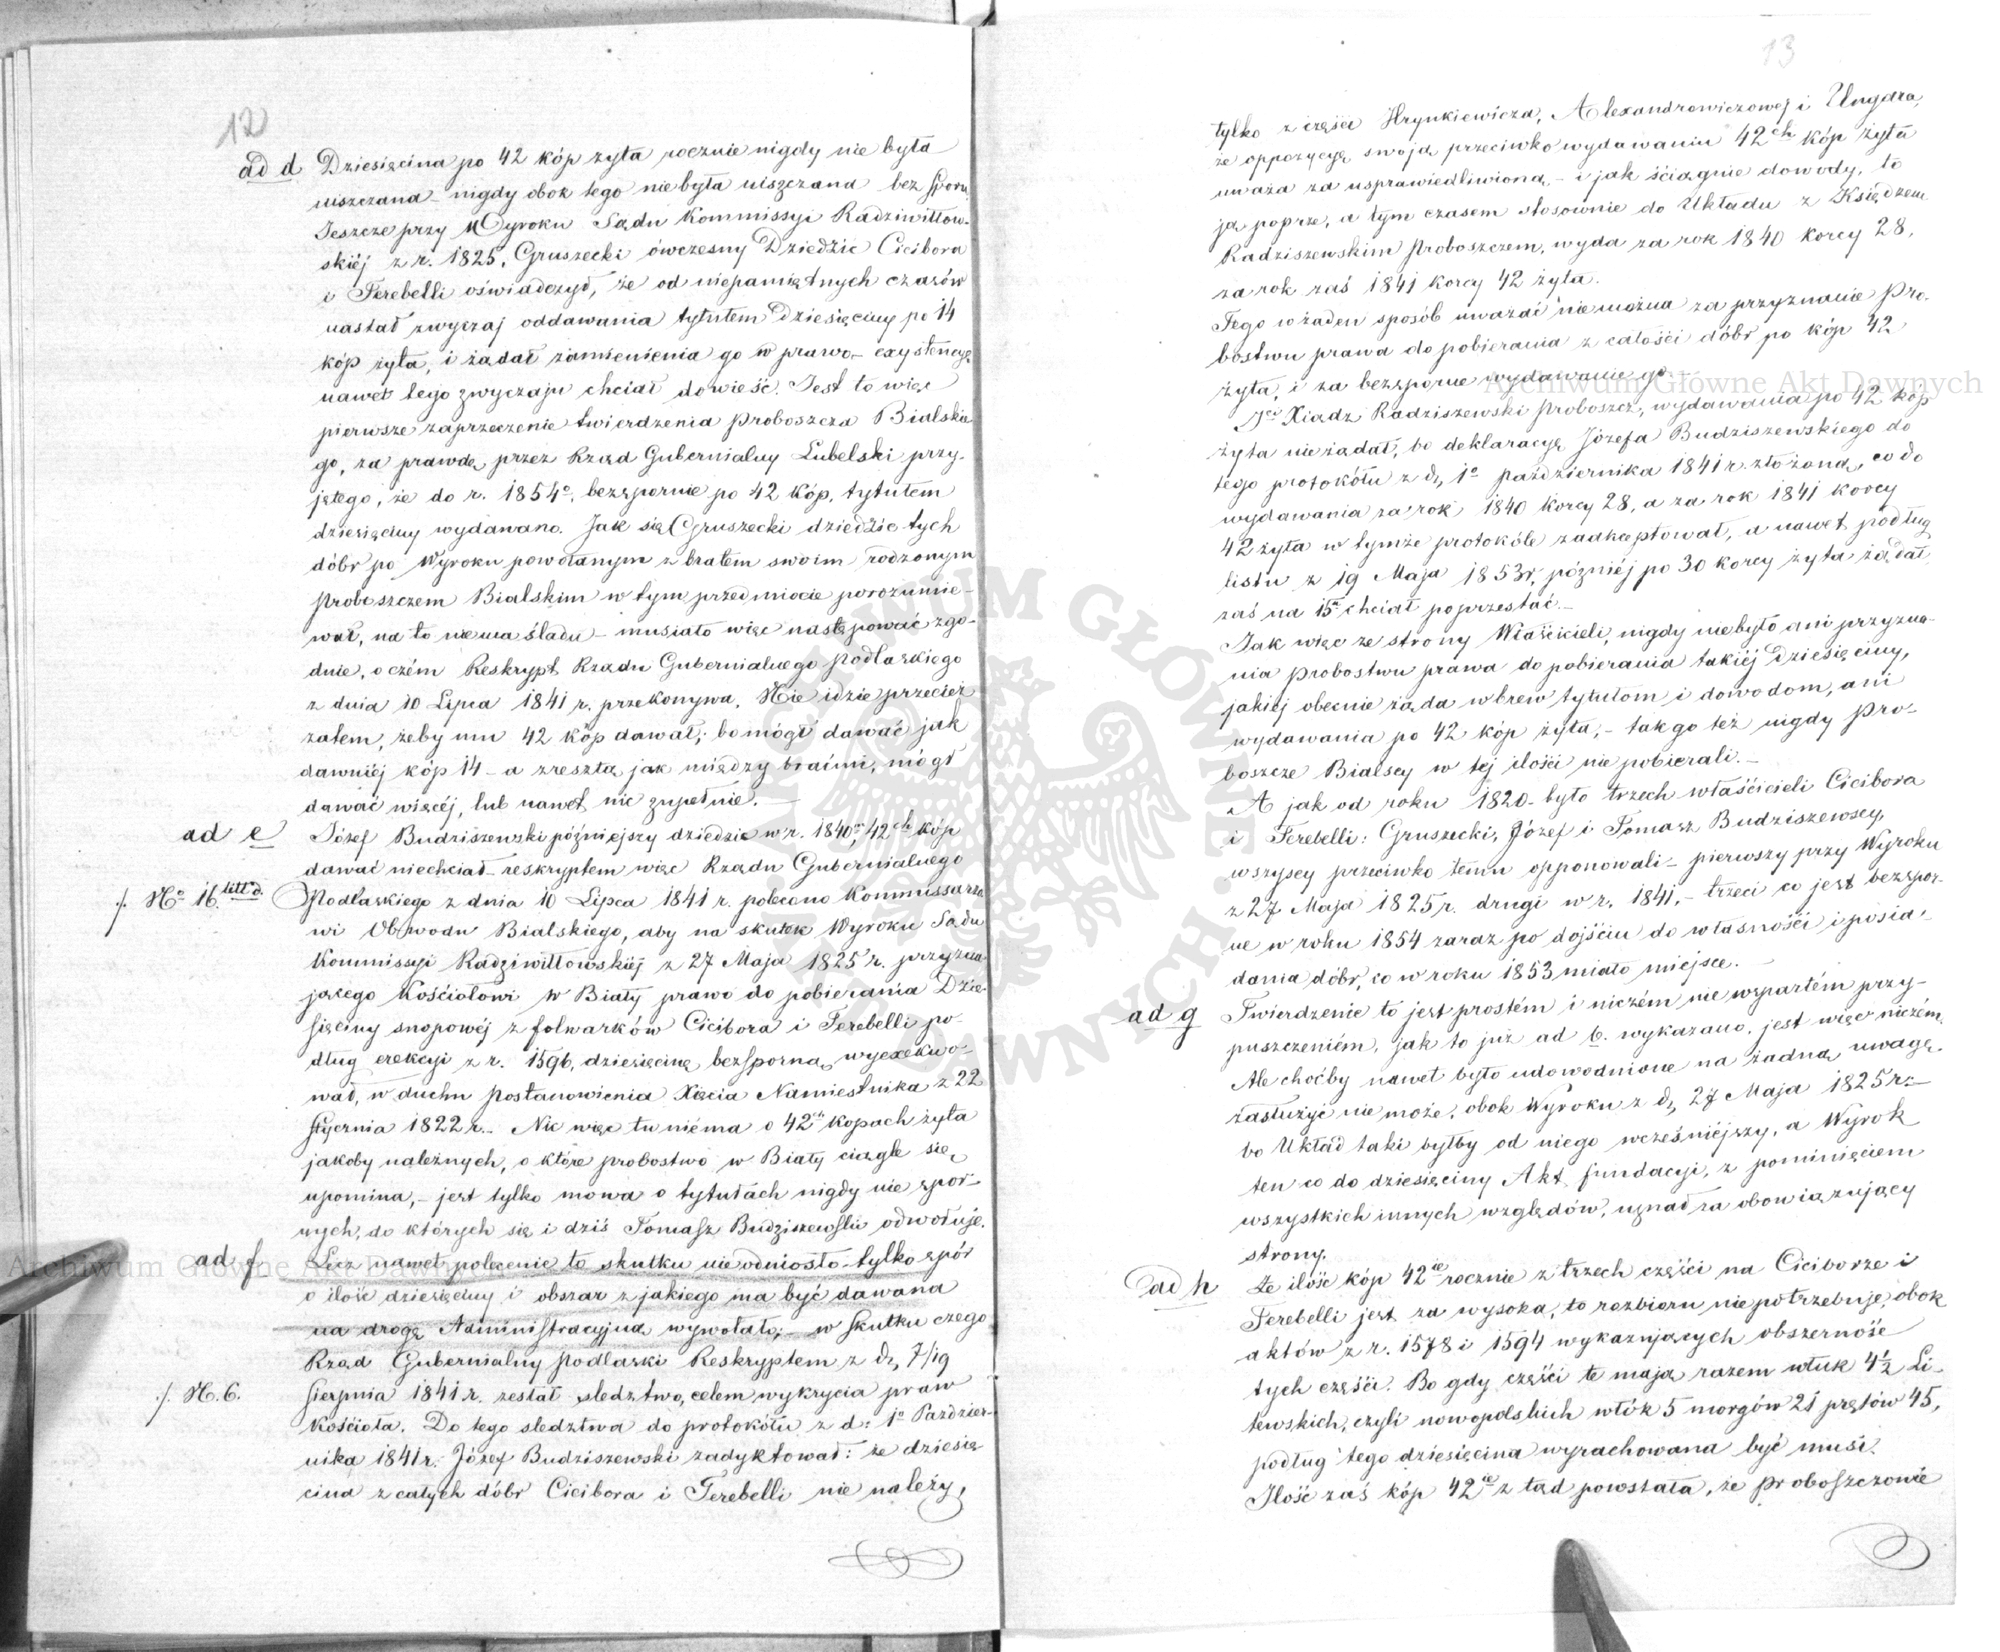 12
ad d Dziesięcina po 42 kóp żyta rocznie nigdy nie była
uiszczana – nigdy obok tego nie była uiszczana bez sporu.
Jeszcze przy Wyroku Sądu Kommissyi Radziwiłłow-
skiéj z r. 1825, Gruszecki ówczesny Dziedzic Cicibora
i Terebelli oświadczył, że od niepamiętnych czasów
nastał zwyczaj oddawania tytułem Dziesięciny po 14
kóp żyta, i żądał zamienienia go w prawo – exystencyę
nawet tego zwyczaju chciał dowieść. Jest to więc
pierwsze zaprzeczenie twierdzenia Proboszcza Bialskie
go, za prawdę przez Rząd Gubernialny Lubelski przy-
jętego, że do r. 1854º, bezspornie po 42 kóp, tytułem
dziesięciny wydawano. Jak się Gruszecki dziedzic tych
dóbr po Wyroku powołanym z bratem swoim rodzonym
Proboszczem Bialskim w tym przedmiocie porozumie-
wał, na to niema śladu – musiało więc następować zgo-
dnie, o czém Reskrypt Rządu Gubernialnego Podlaskiego
z dnia 10 Lipca 1841 r. przekonywa. Nie idzie przecież
zatem, żeby mu 42 kóp dawał; bo mógł dawać jak
dawniéj kóp 14 – a zresztą jak między braćmi, mógł
dawać więcéj, lub nawet nic zupełnie. –
ad e Józef Budziszewski późniejszy dziedzic w r. 1840, 42ch kóp
dawać niechciał – reskryptem więc Rządu Gubernialnego
./. Nº 16. litt d. Podlaskiego z dnia 10 Lipca 1841 r. polecono Kommissarzo
wi Obwodu Bialskiego, aby na skutek Wyroku Sądu
Kommissyi Radziwiłłowskiéj z 27 Maja 1825 r. przyzna
jącego Kościołowi w Biały prawo do pobierania Dzie-
sięciny snopowéj z folwarków Cicibora i Terebelli po-
dług erekcyi z r. 1596, dziesięcinę bezsporną, wyexekwo-
wał, w duchu postanowienia Xięcia Namiestnika z 22
Stycznia 1822 r. – Nic więc tu niéma o 42ch kopach żyta
jakoby należnych, o które probostwo w Biały ciągle się
upomina, – jest tylko mowa o tytułach nigdy nie spor-
nych, do których się i dziś Tomasz Budziszewski odwołuje.
ad f Lecz nawet polecenie to skutku nie odniosło – tylko spór
o ilość dziesięciny i obszar z jakiego ma być dawana
na drogę Administracyjną wywołało; – w skutku czego
Rząd Gubernialny Podlaski Reskryptem z d. 7/19
./. N. 6. Sierpnia 1841 r. zesłał sledztwo, celem wykrycia praw
Kościoła. Do tego sledztwa do protokółu z d: 1º Paździer-
nika 1841 r. Józef Budziszewski zadyktował: że dziesię
cina z całych dóbr Cicibora i Terebelli nie należy,
13
tylko z części Hrynkiewicza, Alexandrowiczowej i Ungdra,
że oppozycyę swoją przeciwko wydawaniu 42ch kóp żyta
uważa za usprawiedliwioną, – i jak ściągnie dowody, to
ją poprze, a tym czasem stosownie do Układu z Księdzem
Radziszewskim Proboszczem, wyda za rok 1840 korcy 28,
za rok zaś 1841 korcy 42 żyta.
Tego w żaden sposób uważać niemożna za przyznanie Pro-
bostwu prawa do pobierania z całości dóbr po kóp 42
żyta, i za bezsporne wydawanie go.
Xiądz Radziszewski Proboszcz, wydawania po 42 kóp
żyta nie żądał, bo deklaracyę Józefa Budziszewskiego do
tego protokółu z d. 1º Października 1841 r. złożoną, co do
wydawania za rok 1840 korcy 28, a za rok 1841 korcy
42 żyta w tymże protokóle zaakceptował, a nawet podług
listu z 19 Maja 1853 r, później po 30 korcy żyta żądał
zaś na 15u chciał poprzestać. –
Jak więc ze strony Właścicieli, nigdy niebyło ani przyzna-
nia probostwu prawa do pobierania takiéj Dziesięciny,
jakiej obecnie żąda wbrew tytułom i dowodom, ani
wydawania po 42 kóp żyta, – tak go też nigdy Pro-
boszcze Bialscy w tej ilości nie pobierali. –
A jak od roku 1820 – było trzech właścicieli Cicibora
i Terebelli: Gruszecki, Józef i Tomasz Budziszewscy,
wszyscy przeciwko temu opponowali – pierwszy przy Wyroku
z 27 Maja 1825 r. drugi w r. 1841, – trzeci co jest bezspor-
ne w roku 1854 zaraz po dojściu do własności i posia-
dania dóbr, co w roku 1853 miało miejsce. –
ad g Twierdzenie to jest prostém i niczém nie wspartém przy-
puszczeniém, jak to już ad b. wykazano. jest więc niczém.
Ale choćby nawet było udowodnione na żadną uwagę
zasłużyć nie może, obok Wyroku z d. 27 Maja 1825 r. –
bo Układ taki byłby od niego wcześniéjszy, a Wyrok
ten co do dziesięciny Akt fundacyi, z pominięciem
wszystkich innych względów, uznał za obowiązujący
strony.
ad h Że ilość kóp 42ie rocznie z trzech części na Ciciborze i
Terebelli jest za wysoka, to rozbioru nie potrzebuje, obok
aktów z r. 1578 i 1594 wykazujących obszerność
tych części. Bo gdy części te mają razem włuk 4½ Li-
tewskich, czyli nowopolskich włók 5 morgów 21 prętów 45,
podług tego dziesięcina wyrachowana być musi.
Ilość zaś kóp 42ie z tąd powstała, że proboszczowie
Archiwum Główne Akt Dawnych
Archiwum Główne Akt Dawnych
ARCHIWUM GŁÓWNE AKT DAWNYCH